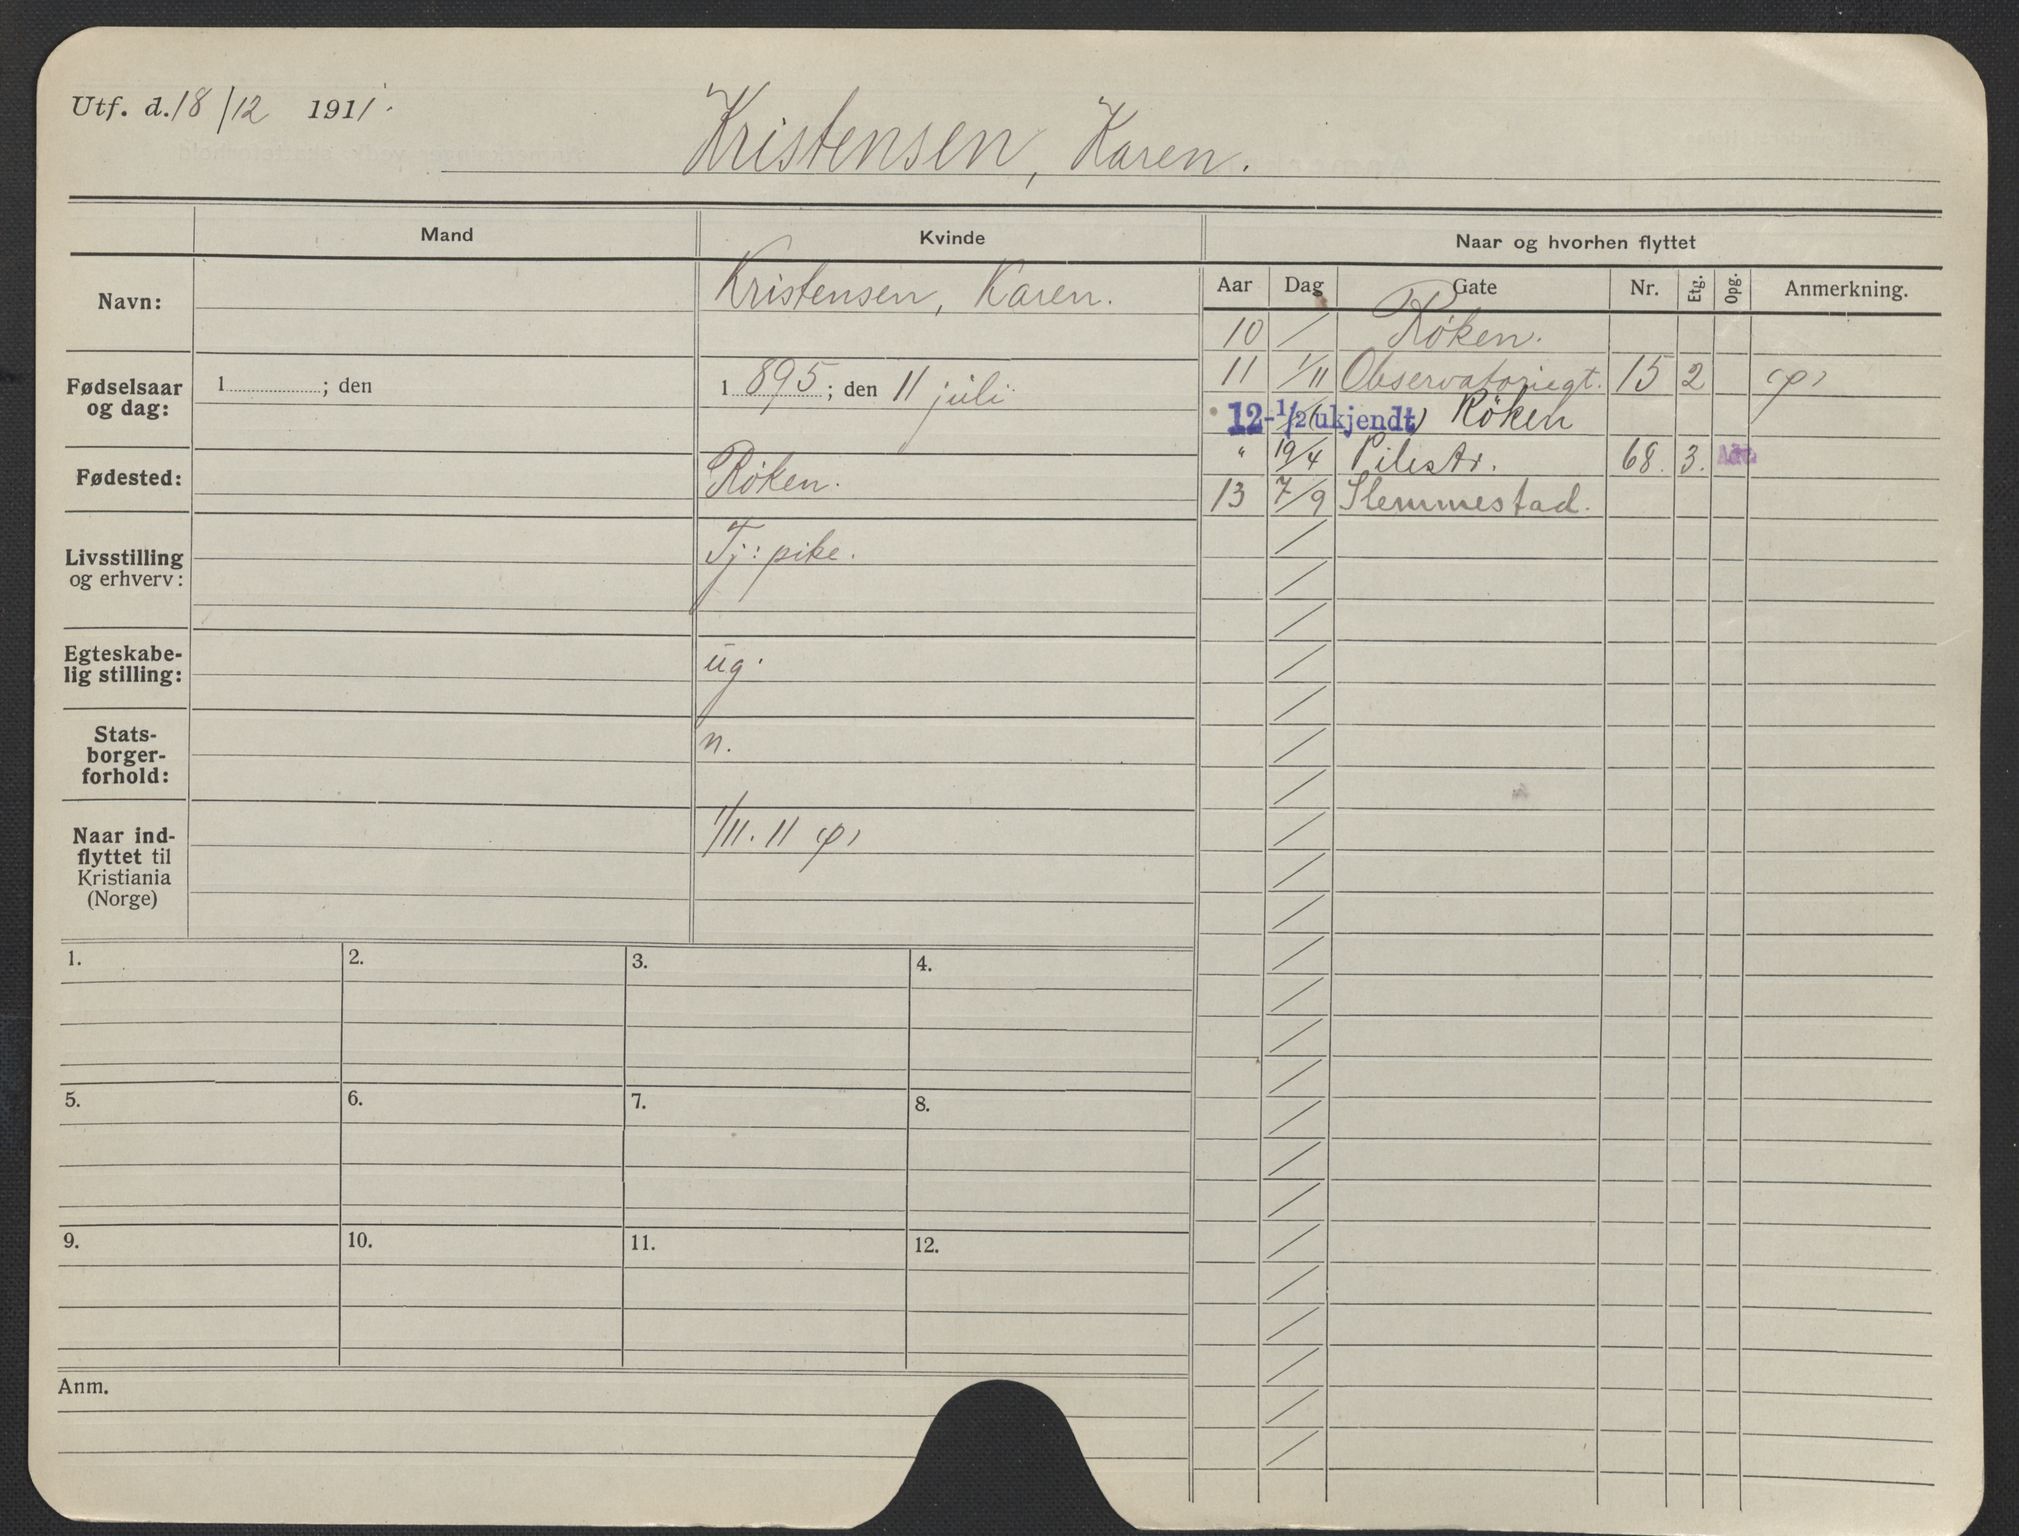 Utf. d. 18/12 1911.
Kristensen, Karen.
Mand Kvinde Naar og hvorhen flyttet
Navn: Kristensen, Karen.
Aar Dag Gate Nr. Etg. Opg. Anmerkning.
10 / Røken.
Fødselsaar og dag: 1 ; den 1 895 ; den 11 juli
11 1/11 Observatoriegt. 15 2 (φ)
12-1/2 (ukjendt) Røken
Fødested: Røken.
" 19/4 Pilestr. 68. 3.
13 7/9 Slemmestad.
Livsstilling og erhverv: Tj: pike.
Egteskabe-
lig stilling: ug.
Stats-
borger-
forhold: n.
Naar ind-
flyttet til
Kristiania
(Norge) 1/11. 11 (φ)
1. 2. 3. 4.
5. 6. 7. 8.
9. 10. 11. 12.
Anm.